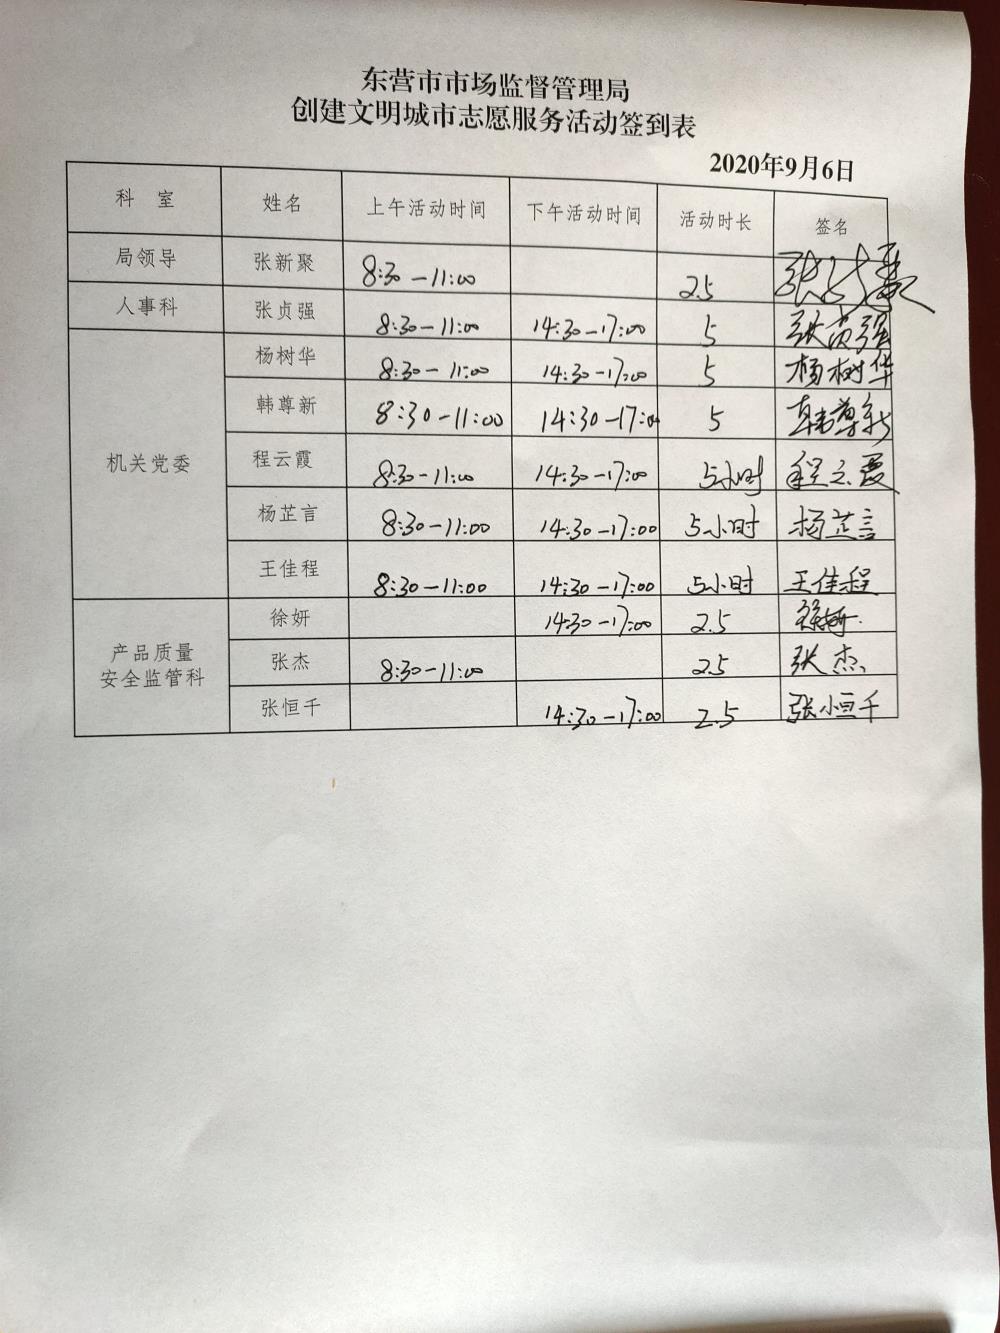 东营市市场监督管理局
创建文明城市志愿服务活动签到表
2020年9月6日
科 室 姓名 上午活动时间 下午活动时间 活动时长 签名
局领导 张新聚 8:30-11:00 2.5
人事科 张贞强 8:30-11:00 14:30-17:00 5 张贞强
机关党委 杨树华 8:30-11:00 14:30-17:00 5 杨树华
韩尊新 8:30-11:00 14:30-17:00 5 韩尊新
程云霞 8:30-11:00 14:30-17:00 5小时 程云霞
杨芷言 8:30-11:00 14:30-17:00 5小时 杨芷言
王佳程 8:30-11:00 14:30-17:00 5小时 王佳程
产品质量
安全监管科
徐妍 14:30-17:00 2.5 徐妍
张杰 8:30-11:00 2.5 张杰
张恒千 14:30-17:00 2.5 张恒千